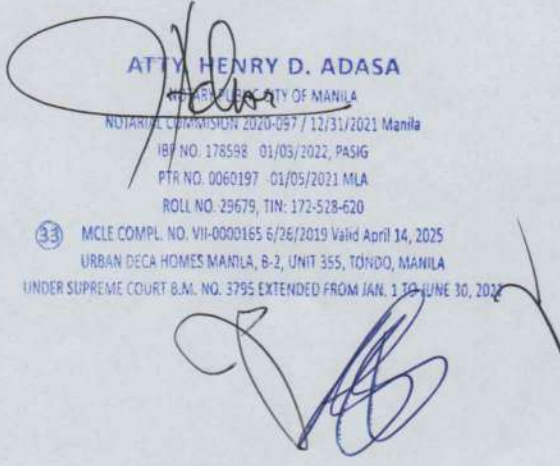 ATTY. HENRY D. ADASA
NOTARY PUBLIC CITY OF MANILA
NOTARIAL COMMISION 2020-097 / 12/31/2021 Manila
IBP NO. 178598 01/03/2022, PASIG
PTR NO. 0060197 01/05/2021 MLA
ROLL NO. 29679, TIN: 172-528-620
33 MCLE COMPL. NO. VII-0000165 6/26/2019 Valid April 14, 2025
URBAN DECA HOMES MANILA, B-2, UNIT 355, TONDO, MANILA
UNDER SUPREME COURT B.M. NO. 3795 EXTENDED FROM JAN. 1 TO JUNE 30, 2022